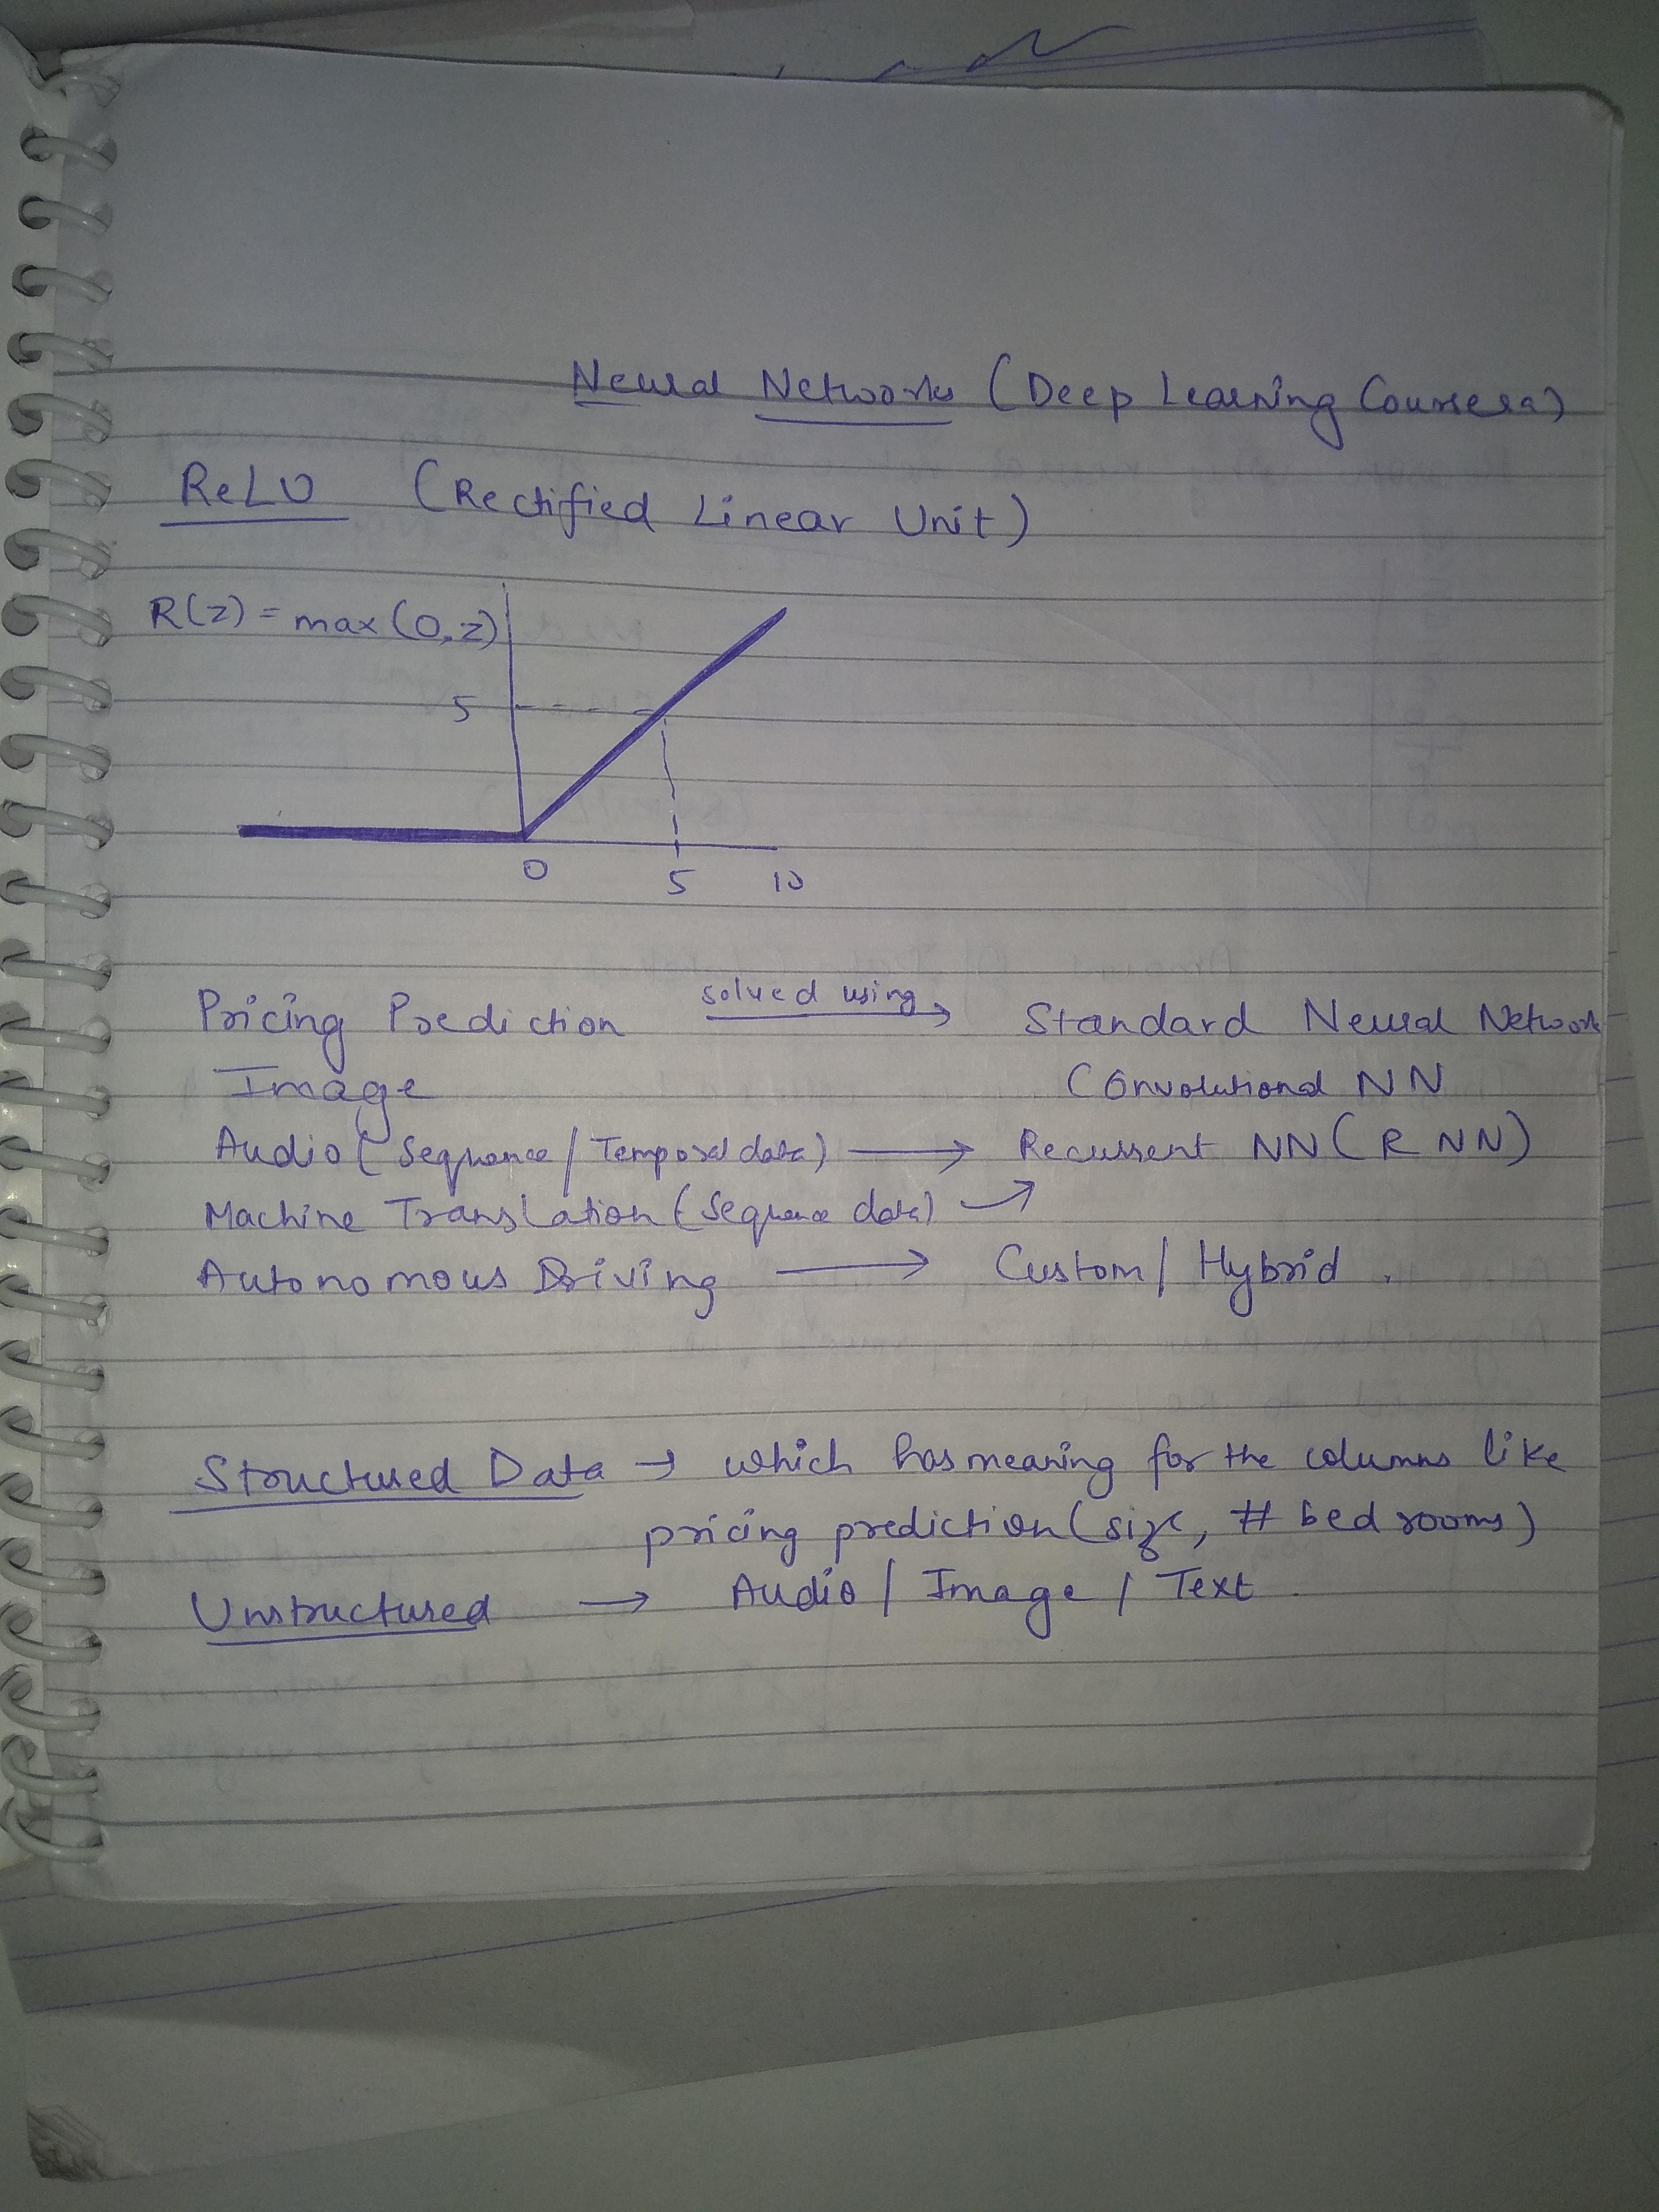 Neural Networks (Deep Learning Coursera)
ReLU (Rectified Linear Unit)
R(z) = max(0,z)
5
0 5 10
Pricing Prediction solved using → Standard Neural Network
Image Convolutional NN
Audio (Sequence / Temporal data) → Recurrent NN (RNN)
Machine Translation (Sequence data) ↗
Autonomous Driving → Custom / Hybrid .
Structured Data → which has meaning for the columns like
pricing prediction (size, # bedrooms)
Unstructured → Audio / Image / Text .